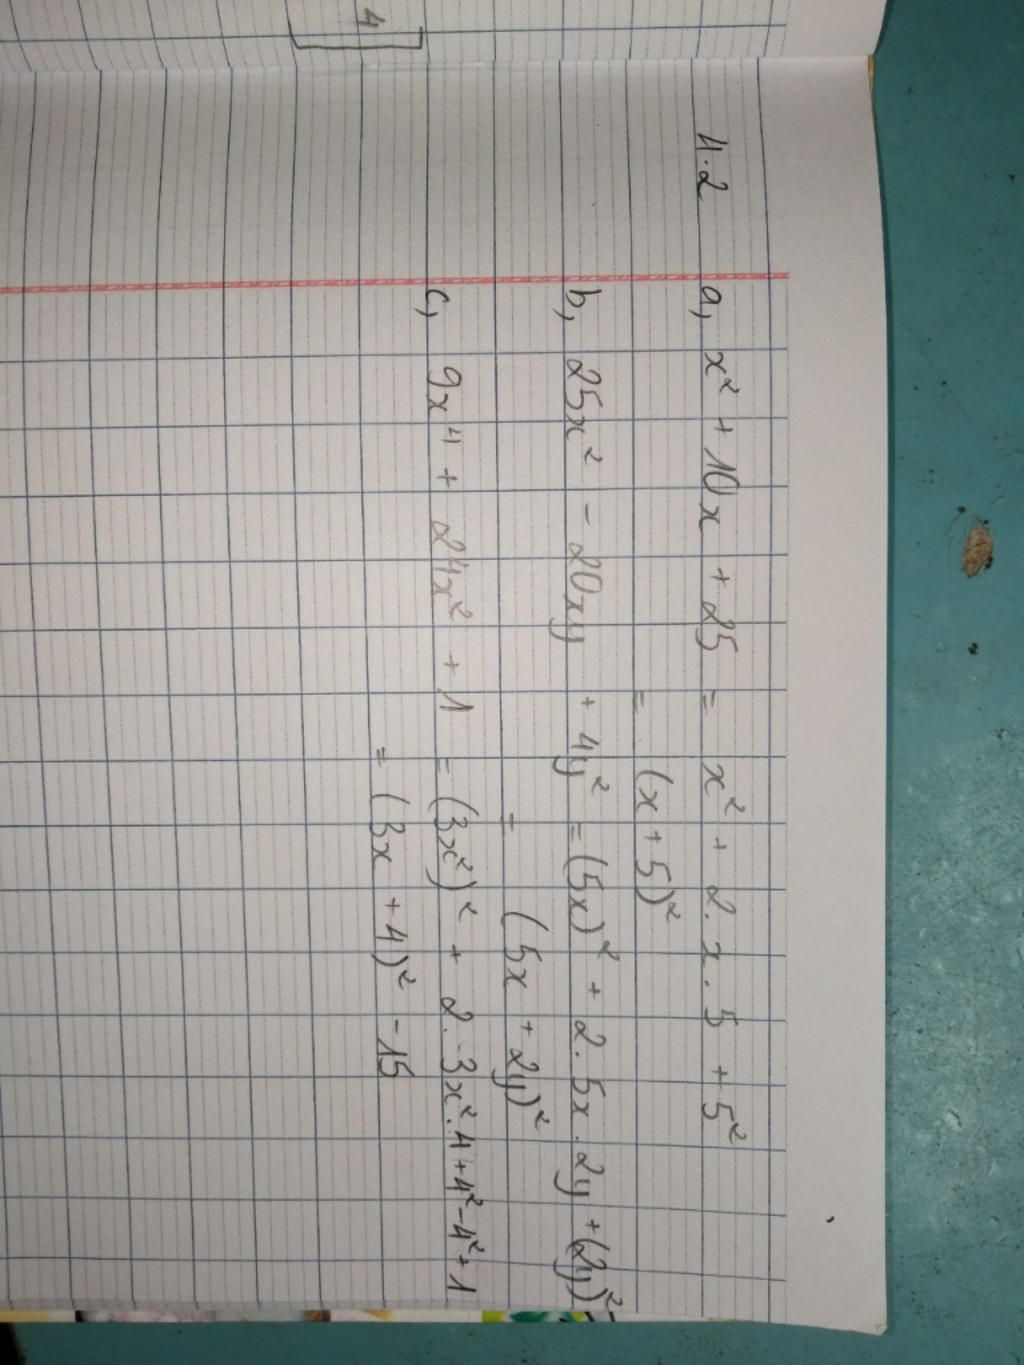 4
4.2 a, x² + 10x + 25 = x² + 2.x.5 + 5²
= (x + 5)²
b, 25x² - 20xy + 4y² = (5x)² + 2.5x.2y + (2y)²
= (5x + 2y)²
c, 9x⁴ + 24x² + 1 = (3x²)² + 2.3x².4 + 4² - 4² + 1
= (3x + 4)² - 15